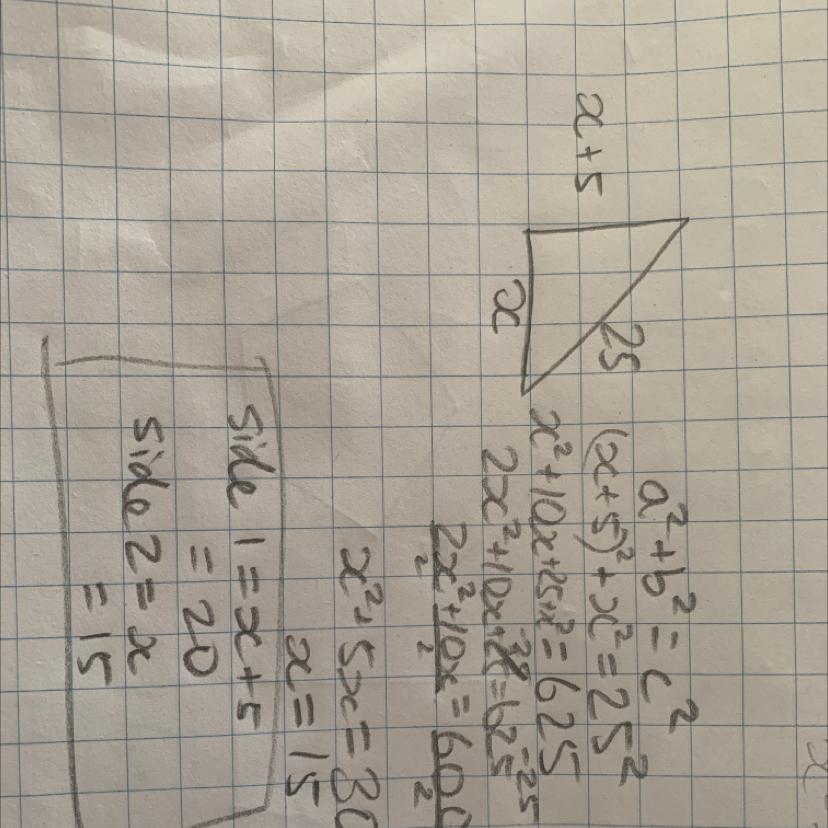 x+5
x
25
a²+b²=c²
(x+5)²+x²=25²
x²+10x+25+x²=625
2x²+10x+25=625
-25 -25
2x²+10x=600
2 2 2
x²+5x=30
x=15
side 1=x+5
=20
side 2=x
=15